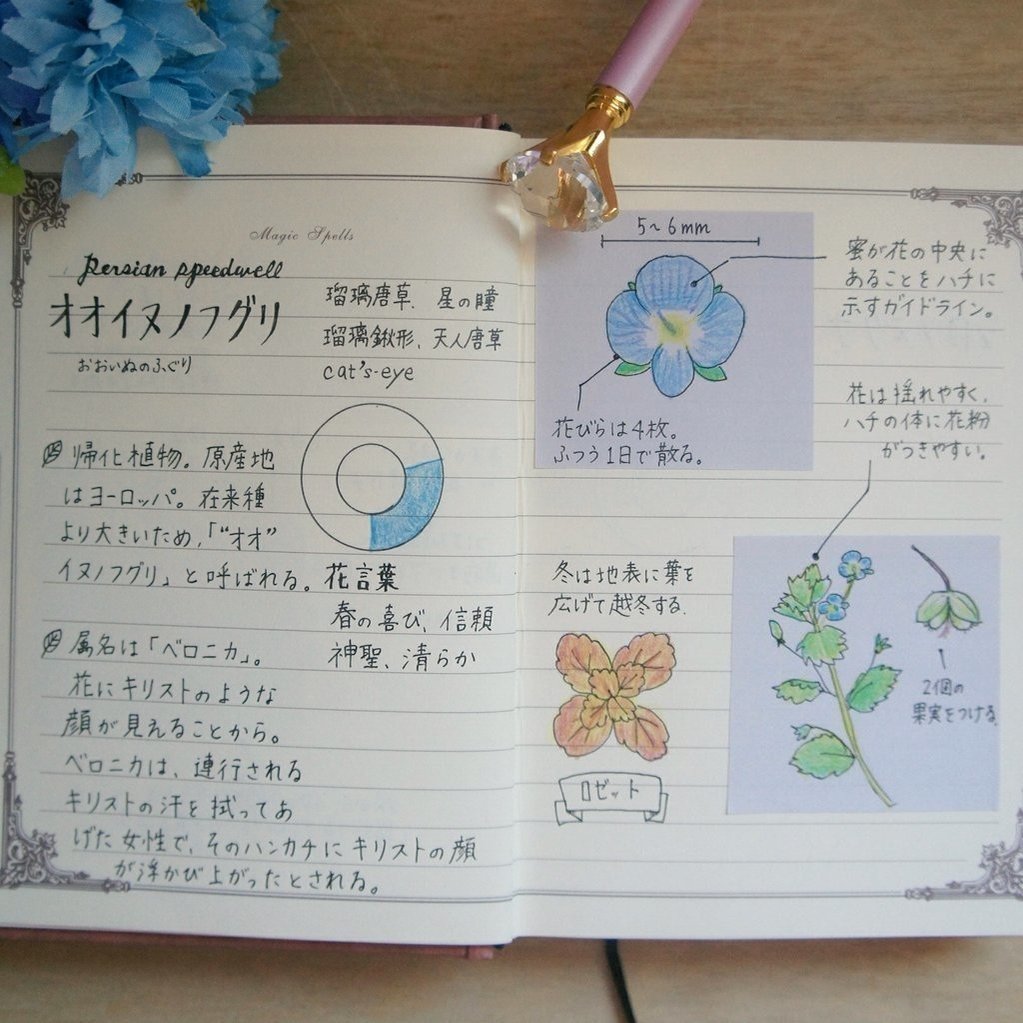 Magic Spells
Persian speedwell
オオイヌノフグリ
おおいぬのふぐり
瑠璃唐草、星の瞳
瑠璃鍬形、天人唐草
cat's-eye
帰化植物。原産地
はヨーロッパ。在来種
より大きいため、「“オオ”
イヌノフグリ」と呼ばれる。
花言葉
春の喜び、信頼
神聖、清らか
属名は「ベロニカ」。
花にキリストのような
顔が見えることから。
ベロニカは、連行される
キリストの汗を拭ってあ
げた女性で、そのハンカチにキリストの顔
が浮かび上がったとされる。
5~6mm
蜜が花の中央に
あることをハチに
示すガイドライン。
花びらは4枚。
ふつう1日で散る。
花は揺れやすく、
ハチの体に花粉
がつきやすい。
冬は地表に葉を
広げて越冬する。
ロゼット
2個の
果実をつける。